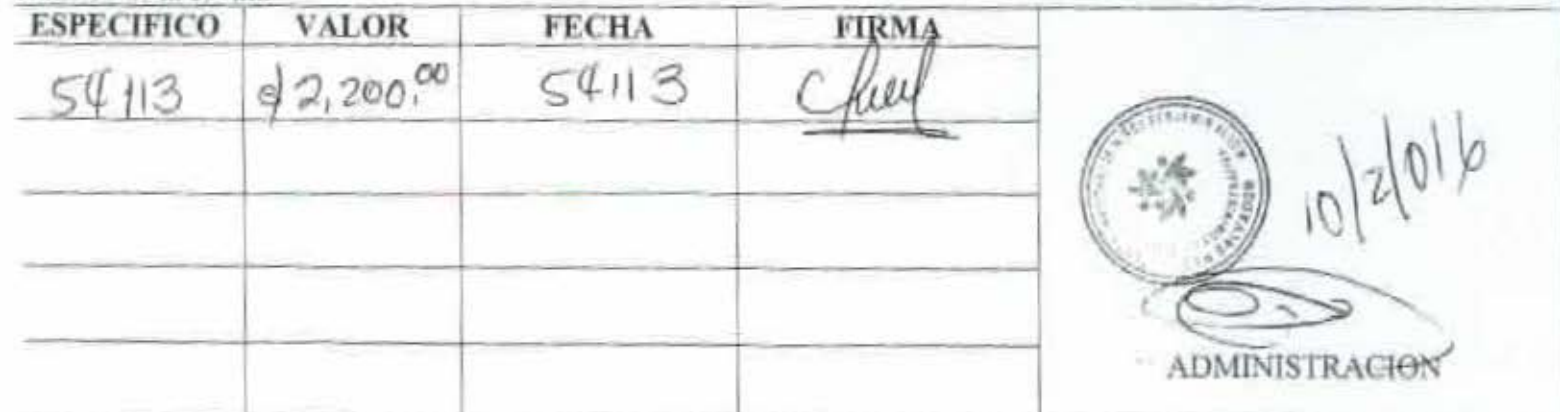 ESPECIFICO VALOR FECHA FIRMA
54113 ¢2,200.00 54113
10/2/016
ADMINISTRACION